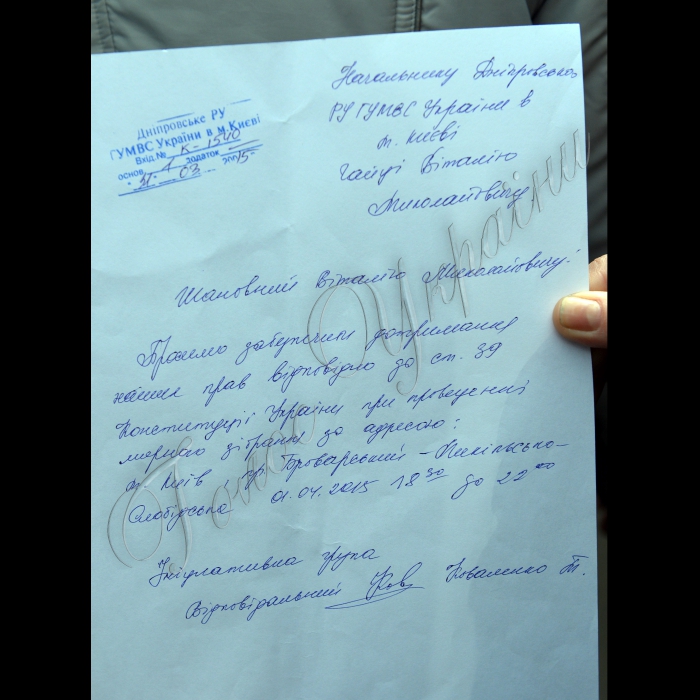 Дніпровське РУ
ГУМВС України в м.Києві
Вхід № К-1540
основ. 1 додаток
"31" 03 2015
Начальнику Дніпровського
РУ ГУМВС України в
м. Києві
Віталію
Миколайовичу
Шановний Віталію Миколайовичу!
Просимо забезпечити дотримання
наших прав відповідно до ст. 39
Конституції України при проведенні
мирного зібрання за адресою:
м. Київ, пр. Броварський – Микільсько-
Слобідська 01.04.2015 18 30 до 22 00
Ініціативна група
Відповідальний Коваленко Т.
Голос України